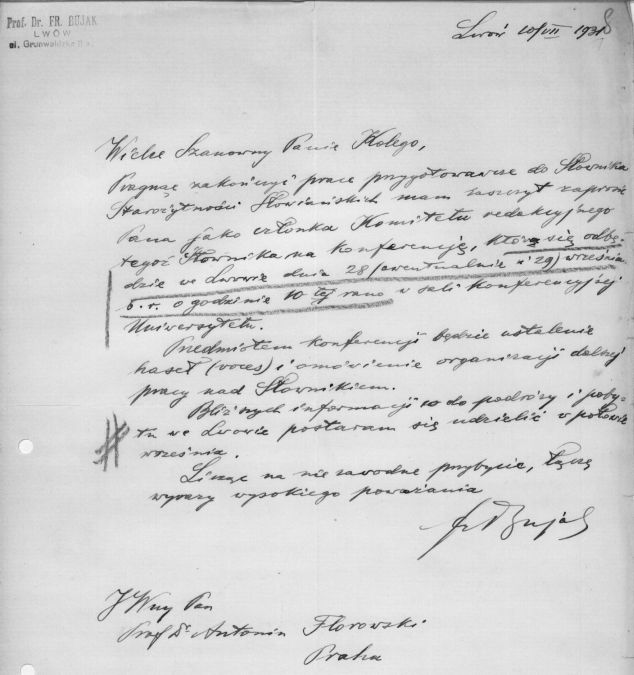 Prof. Dr. FR. BUJAK
LWÓW
ul. Grunwaldzka
Lwów 10/VII 1938
Wielce Szanowny Panie Kolego,
Pragnąc zakończyć prace przygotowawcze do Słownika
Starożytności Słowiańskich mam zaszczyt zaprosić
Pana jako członka Komitetu redakcyjnego
tegoż Słownika na konferencję, która się odbę-
dzie we Lwowie dnia 28 (ewentualnie i 29) września
b. r. o godzinie 10 tej rano w sali konferencyjnej
Uniwersytetu.
Przedmiotem konferencji będzie ustalenie
haseł (voces) i omówienie organizacji dalszej
pracy nad Słownikiem.
Bliższych informacji co do podróży i poby-
tu we Lwowie postaram się udzielić w połowie
września.
Licząc na niezawodne przybycie, łączę
wyrazy wysokiego poważania
Fr Bujak
J Wny Pan
Prof Dr Antonin Florowski
Praha